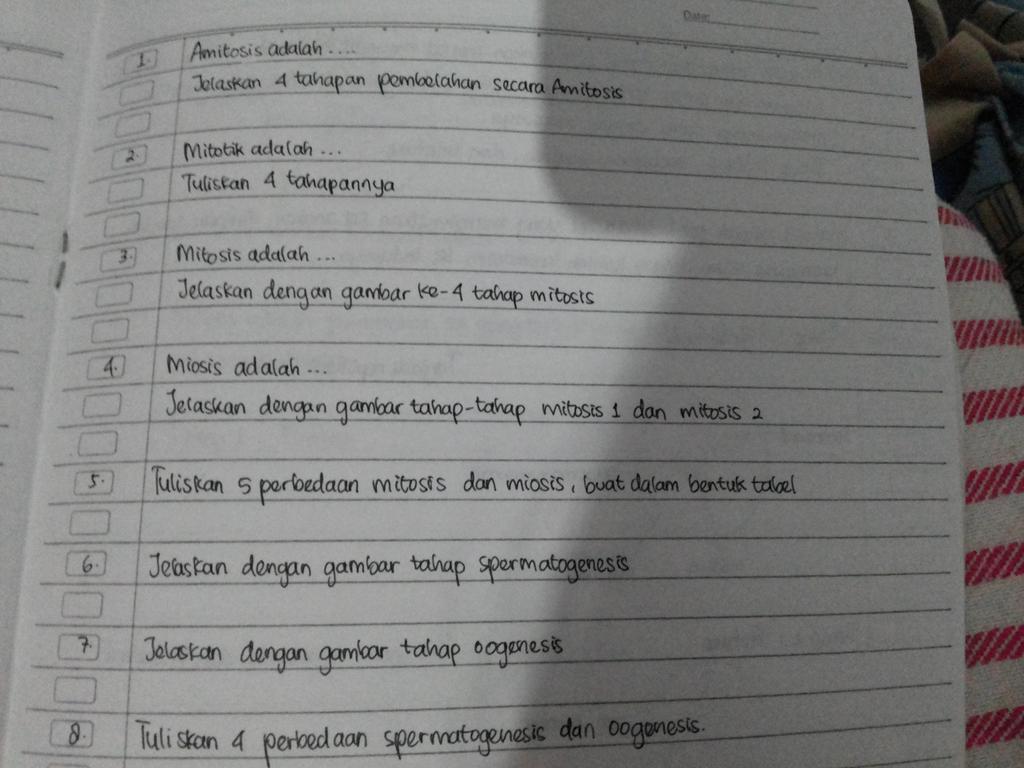 Date:
1. Amitosis adalah ....
Jelaskan 4 tahapan pembelahan secara Amitosis
2. Mitotik adalah ...
Tuliskan 4 tahapannya
3. Mitosis adalah ...
Jelaskan dengan gambar ke-4 tahap mitosis
4. Miosis adalah ...
Jelaskan dengan gambar tahap-tahap mitosis 1 dan mitosis 2
5. Tuliskan 5 perbedaan mitosis dan miosis, buat dalam bentuk tabel
6. Jelaskan dengan gambar tahap spermatogenesis
7. Jelaskan dengan gambar tahap oogenesis
8. Tuliskan 4 perbedaan spermatogenesis dan oogenesis.